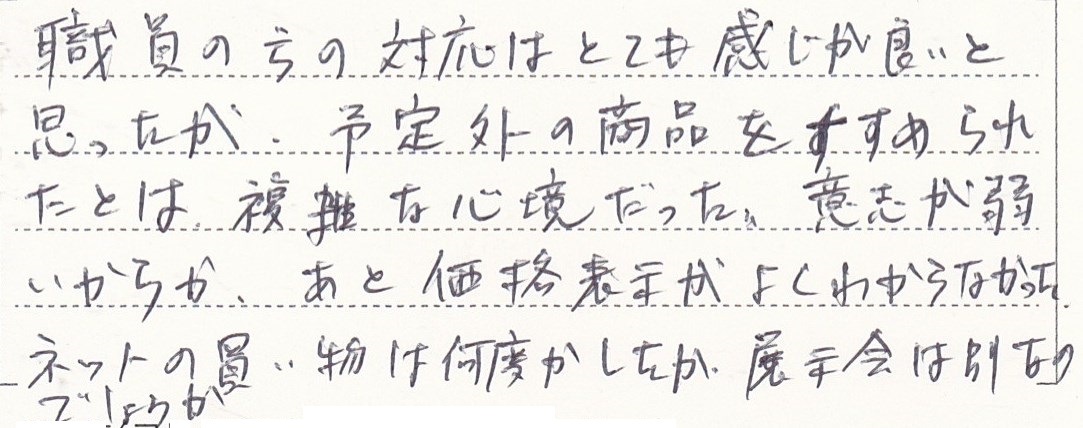 職員の方の対応はとても感じが良いと
思ったが、予定外の商品をすすめられ
たとは、複雑な心境だった。意志が弱
いからか、あと価格表示がよくわからなかった。
ネットの買い物は何度かしたが、展示会は別なの
でしょうか